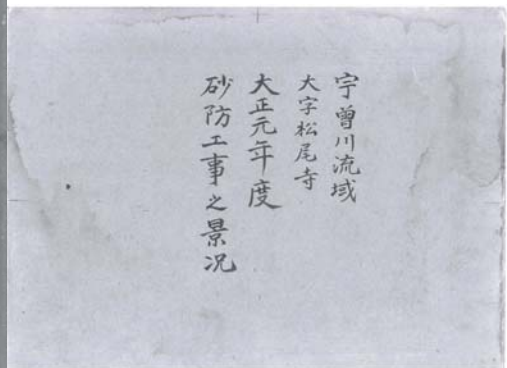 宇曽川流域
大字松尾寺
大正元年度
砂防工事之景況